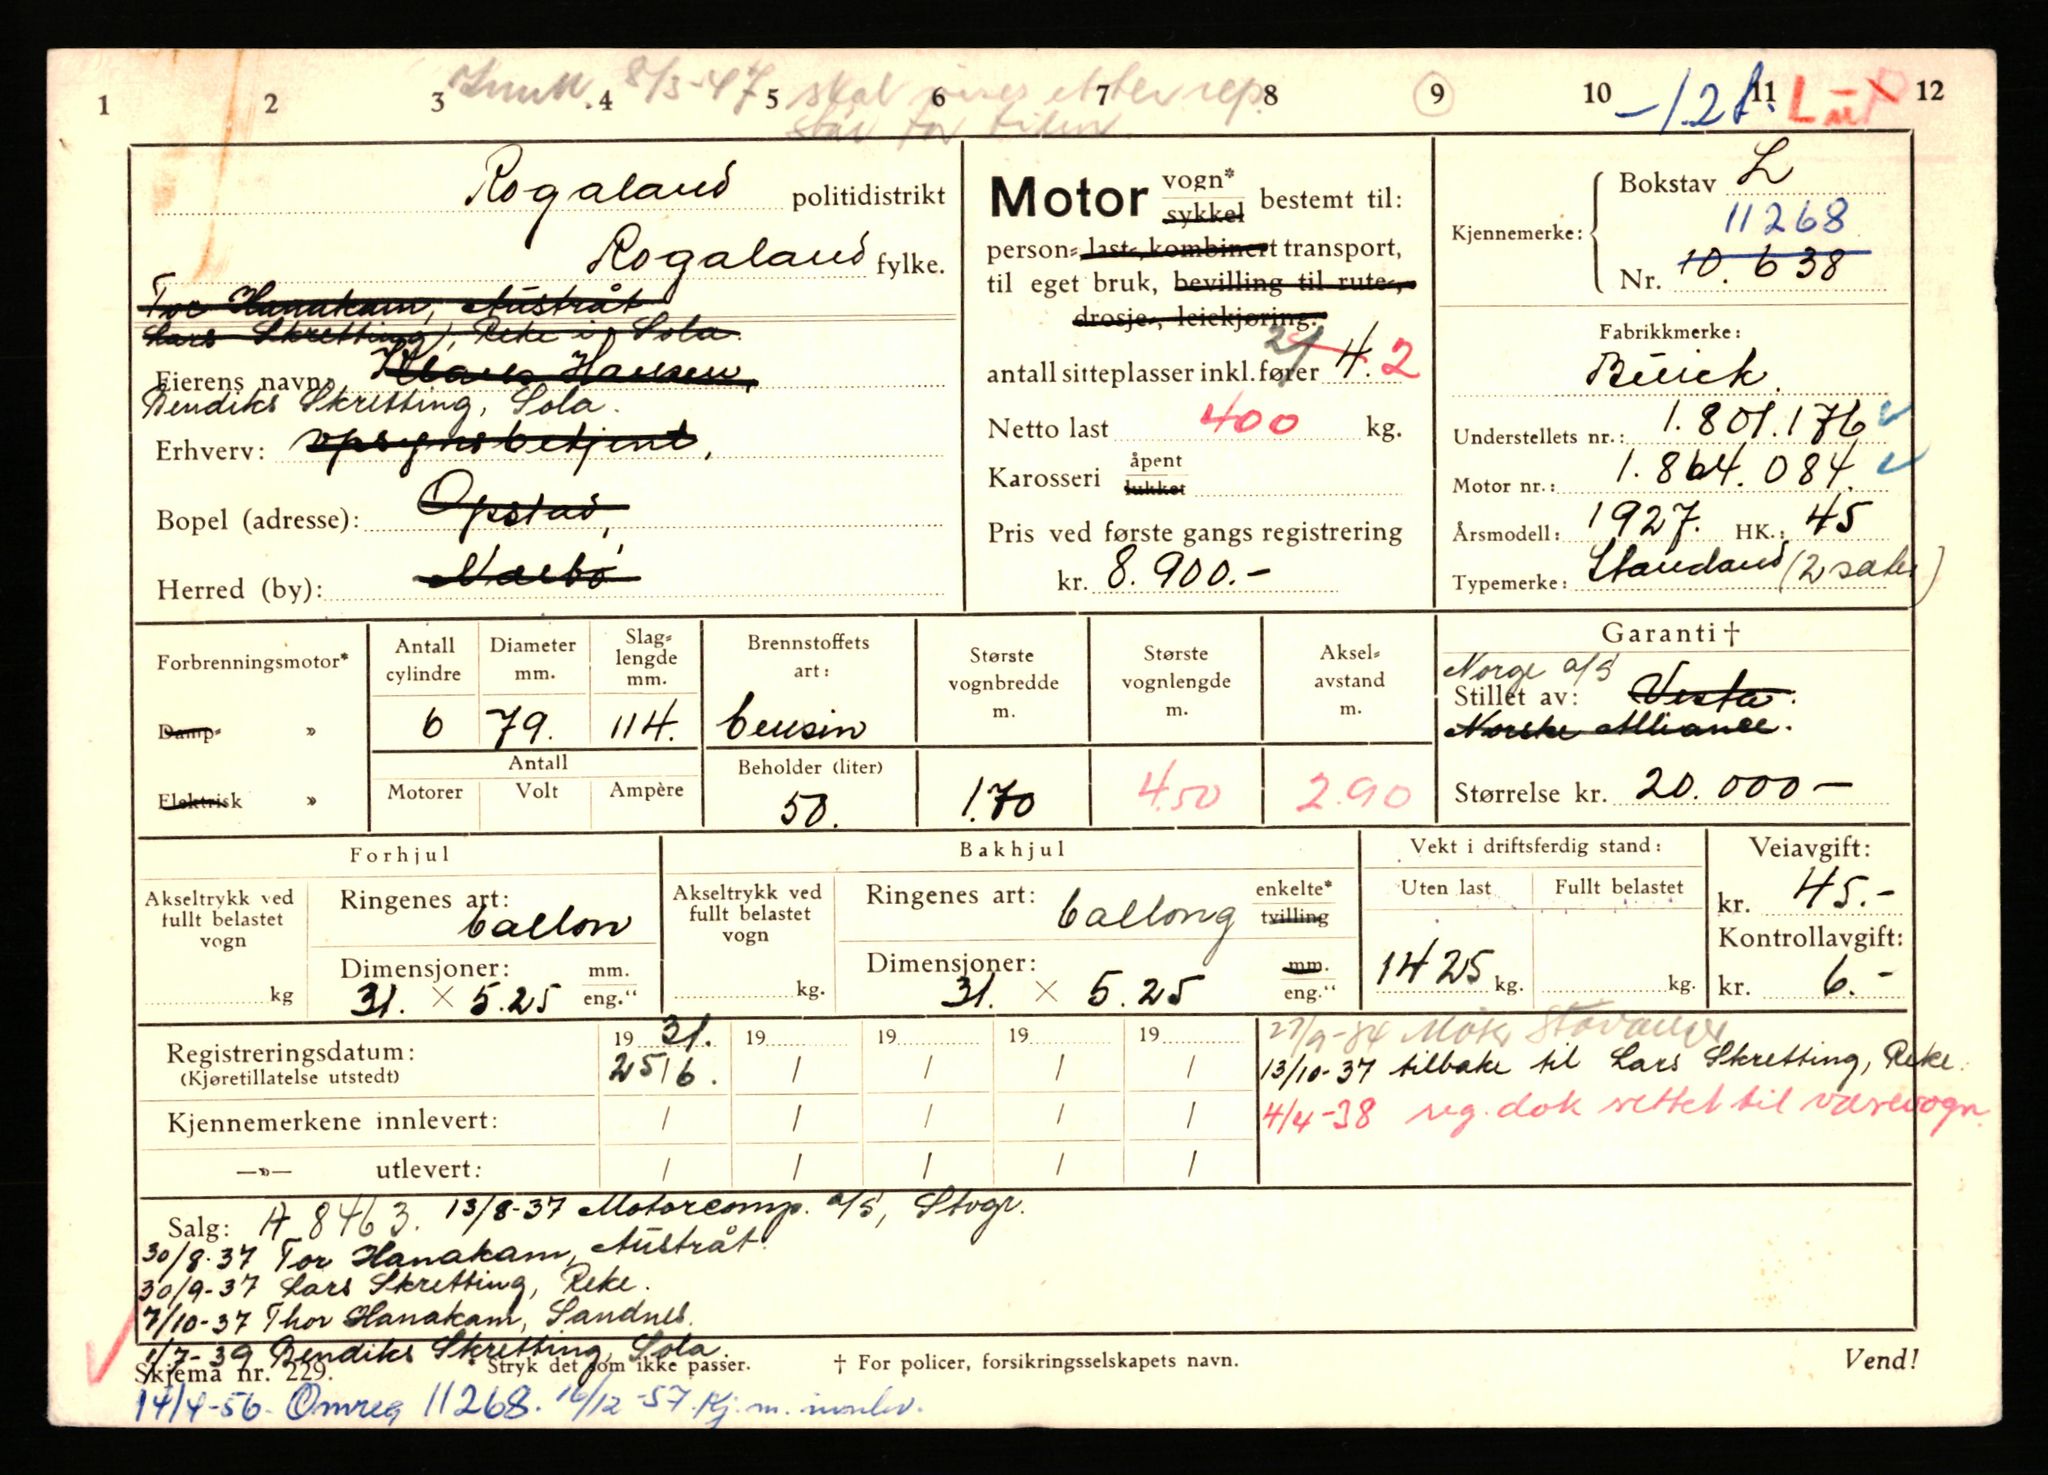 1 2 3 4 5 6 7 8 9 10 11 12
8/3-47 skal vises etter rep.
-1.21. L
Rogaland politidistrikt
Rogaland fylke.
Tor Hanakam, Austråt
Lars Skretting, Reke i Sola
Eierens navn: Klaus Hansen,
Bendiks Skretting, Sola.
Erhverv: opsynsbetjent,
Bopel (adresse): Opstad,
Herred (by): Nærbø
Motor vogn* sykkel bestemt til:
person-, last-, kombinert transport,
til eget bruk, bevilling til rute-,
drosje-, leiekjøring.
antall sitteplasser inkl. fører 4. 2
Netto last 400 kg.
Karosseri åpent lukket
Pris ved første gangs registrering
kr. 8.900.-
Kjennemerke: Bokstav L
11268
Nr. 10.638
Fabrikkmerke:
Buick.
Understellets nr.: 1.801.176
Motor nr.: 1.864.084.
Årsmodell: 1927. HK.: 45
Typemerke: Standard (2 seter)
Forbrenningsmotor*
Damp- »
Elektrisk »
Antall cylindre 6
Diameter mm. 79.
Slag-lengde mm. 114.
Antall
Motorer Volt Ampère
Brennstoffets art:
bensin
Beholder (liter)
50.
Største vognbredde m.
1.70
Største vognlengde m.
4.50
Aksel-avstand m.
2.90
Garanti †
Norge a/S
Stillet av: Vesta.
Norske Alliance.
Størrelse kr. 20.000-
Forhjul
Akseltrykk ved fullt belastet vogn
kg
Ringenes art:
ballon
Dimensjoner: mm.
31. × 5.25 eng."
Bakhjul
Akseltrykk ved fullt belastet vogn
kg.
Ringenes art: enkelte*
ballong tvilling
Dimensjoner: mm.
31. × 5.25 eng."
Vekt i driftsferdig stand:
Uten last Fullt belastet
1425 kg. kg.
Veiavgift:
kr. 45.-
Kontrollavgift:
kr. 6.-
Registreringsdatum: 19 31. 19 19 19 19
(Kjøretillatelse utstedt) 25/6. / / / /
Kjennemerkene innlevert: / / / / /
—»— utlevert: / / / / /
Stavanger
13/10-37 tilbake til Lars Skretting, Reke.
4/4-38 reg. dok rettet til varevogn.
Salg: A 8463. 13/8-37 Motorcomp. a/S, Stvgr.
30/8-37 Tor Hanakam, Austråt.
30/9-37 Lars Skretting, Reke.
7/10-37 Thor Hanakam, Sandnes.
1/7-39 Bendiks Skretting, Sola.
Skjema nr. 229. * Stryk det som ikke passer. † For policer, forsikringsselskapets navn. Vend!
14/4-56. Omreg 11268. 16/12-57. Kj. m. innlev.